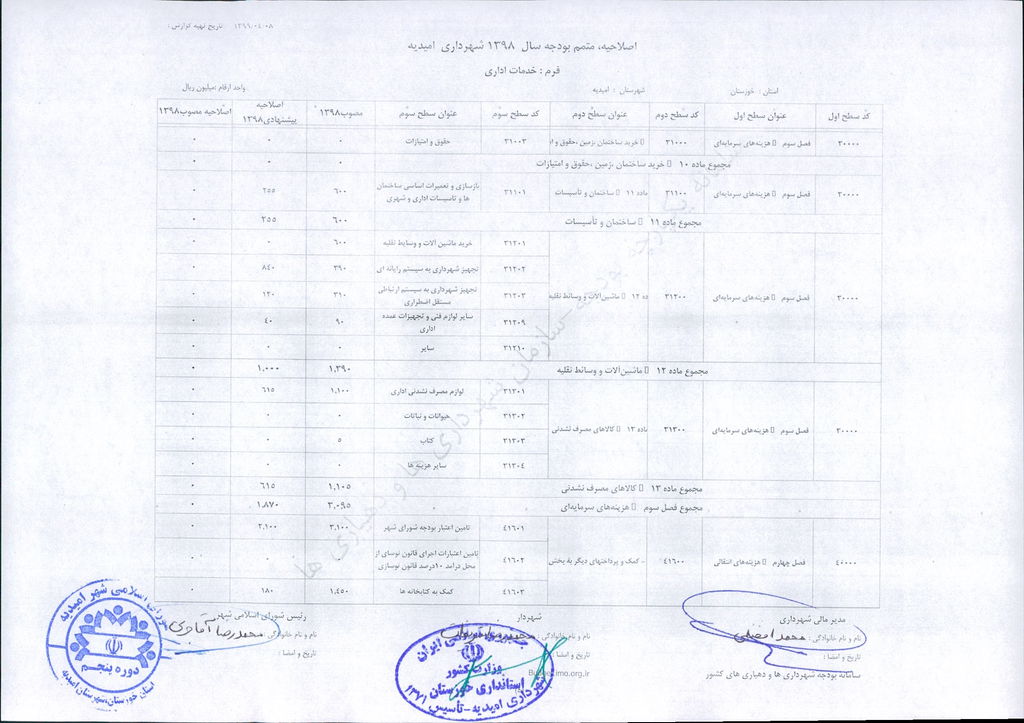 تاریخ تهیه گزارش : ۱۳۹۹/۰۴/۰۸
اصلاحیه، متمم بودجه سال ۱۳۹۸ شهرداری امیدیه
فرم : خدمات اداری
استان : خوزستان شهرستان : امیدیه واحد ارقام :میلیون ریال
کد سطح اول عنوان سطح اول کد سطح دوم عنوان سطح دوم کد سطح سوم عنوان سطح سوم مصوب۱۳۹۸ اصلاحیه پیشنهادی۱۳۹۸ اصلاحیه مصوب۱۳۹۸
۳۰۰۰۰ فصل سوم هزینه‌های سرمایه‌ای ۳۱۰۰۰ خرید ساختمان ،زمین ،حقوق و ا ۳۱۰۰۳ حقوق و امتیازات ۰ ۰ ۰
مجموع ماده ۱۰ خرید ساختمان ،زمین ،حقوق و امتیازات ۰ ۰ ۰
۳۰۰۰۰ فصل سوم هزینه‌های سرمایه‌ای ۳۱۱۰۰ ماده ۱۱ ساختمان و تاسیسات ۳۱۱۰۱ بازسازی و تعمیرات اساسی ساختمان ها و تاسیسات اداری و شهری ۶۰۰ ۲۵۵ ۰
مجموع ماده ۱۱ ساختمان و تأسیسات ۶۰۰ ۲۵۵ ۰
۳۰۰۰۰ فصل سوم هزینه‌های سرمایه‌ای ۳۱۲۰۰ ده ۱۲ ماشین‌آلات و وسائط نقلیه
۳۱۲۰۱ خرید ماشین آلات و وسایط نقلیه ۶۰۰ ۰ ۰
۳۱۲۰۲ تجهیز شهرداری به سیستم رایانه ای ۳۹۰ ۸۴۰ ۰
۳۱۲۰۳ تجهیز شهرداری به سیستم ارتباطی مستقل اضطراری ۳۱۰ ۱۲۰ ۰
۳۱۲۰۹ سایر لوازم فنی و تجهیزات عمده اداری ۹۰ ۴۰ ۰
۳۱۲۱۰ سایر ۰ ۰ ۰
مجموع ماده ۱۲ ماشین‌آلات و وسائط نقلیه ۱,۳۹۰ ۱,۰۰۰ ۰
۳۰۰۰۰ فصل سوم هزینه‌های سرمایه‌ای ۳۱۳۰۰ ماده ۱۳ کالاهای مصرف نشدنی
۳۱۳۰۱ لوازم مصرف نشدنی اداری ۱,۱۰۰ ۶۱۵ ۰
۳۱۳۰۲ حیوانات و نباتات ۰ ۰ ۰
۳۱۳۰۳ کتاب ۵ ۰ ۰
۳۱۳۰۴ سایر هزینه ها ۰ ۰ ۰
مجموع ماده ۱۳ کالاهای مصرف نشدنی ۱,۱۰۵ ۶۱۵ ۰
مجموع فصل سوم هزینه‌های سرمایه‌ای ۳,۰۹۵ ۱,۸۷۰ ۰
۴۰۰۰۰ فصل چهارم هزینه‌های انتقالی ۴۱۶۰۰ - کمک و پرداختهای دیگر به بخش
۴۱۶۰۱ تامین اعتبار بودجه شورای شهر ۳,۱۰۰ ۲,۱۰۰ ۰
۴۱۶۰۲ تامین اعتبارات اجرای قانون نوسای از محل درامد ۱۰درصد قانون نوسازی ۰ ۰ ۰
۴۱۶۰۳ کمک به کتابخانه ها ۱,۴۵۰ ۱۸۰ ۰
سامانه بودجه -سازمان شهرداری ها و دهیاری ها
مدیر مالی شهرداری شهردار رئیس شورای اسلامی شهر
نام و نام خانوادگی : محمد نام و نام خانوادگی : نام و نام خانوادگی : محمدرضا
تاریخ و امضا : تاریخ و امضا : تاریخ و امضا :
سامانه بودجه شهرداری ها و دهیاری های کشور imo.org.ir
جمهوری اسلامی ایران
وزارت کشور
استانداری خوزستان
شهرداری امیدیه-تأسیس ۱۳۷۱
شورای اسلامی شهر امیدیه
دوره پنجم
استان خوزستان،شهرستان امیدیه